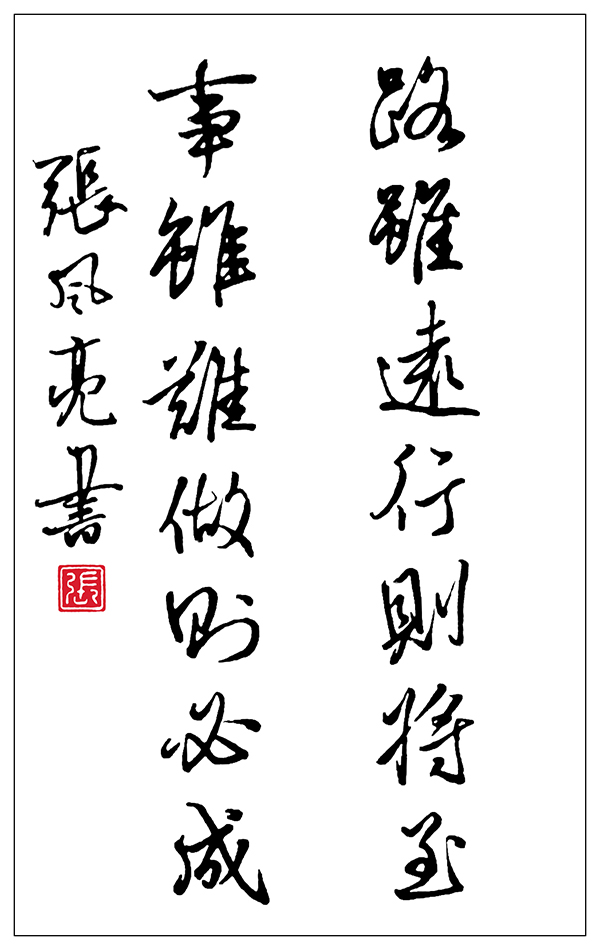 路雖遠行則將至
事雖難做則必成
張风亮書
張